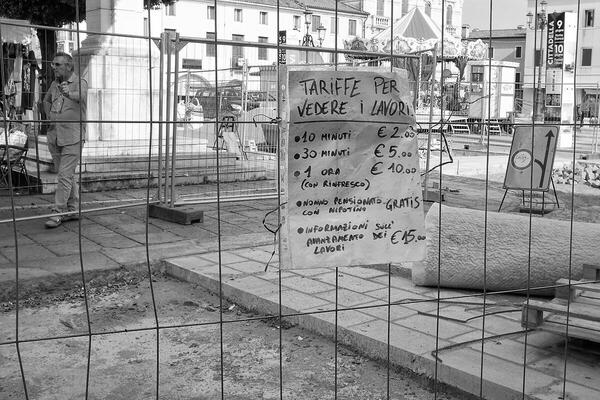 TARIFFE PER
VEDERE I LAVORI
• 10 MINUTI € 2.00
• 30 MINUTI € 5.00
• 1 ORA € 10.00
(CON RINFRESCO)
• NONNO PENSIONATO GRATIS
CON NIPOTINO
• INFORMAZIONI SULL'
AVANZAMENTO DEI € 15.00
LAVORI
CITTADELLA
9
10